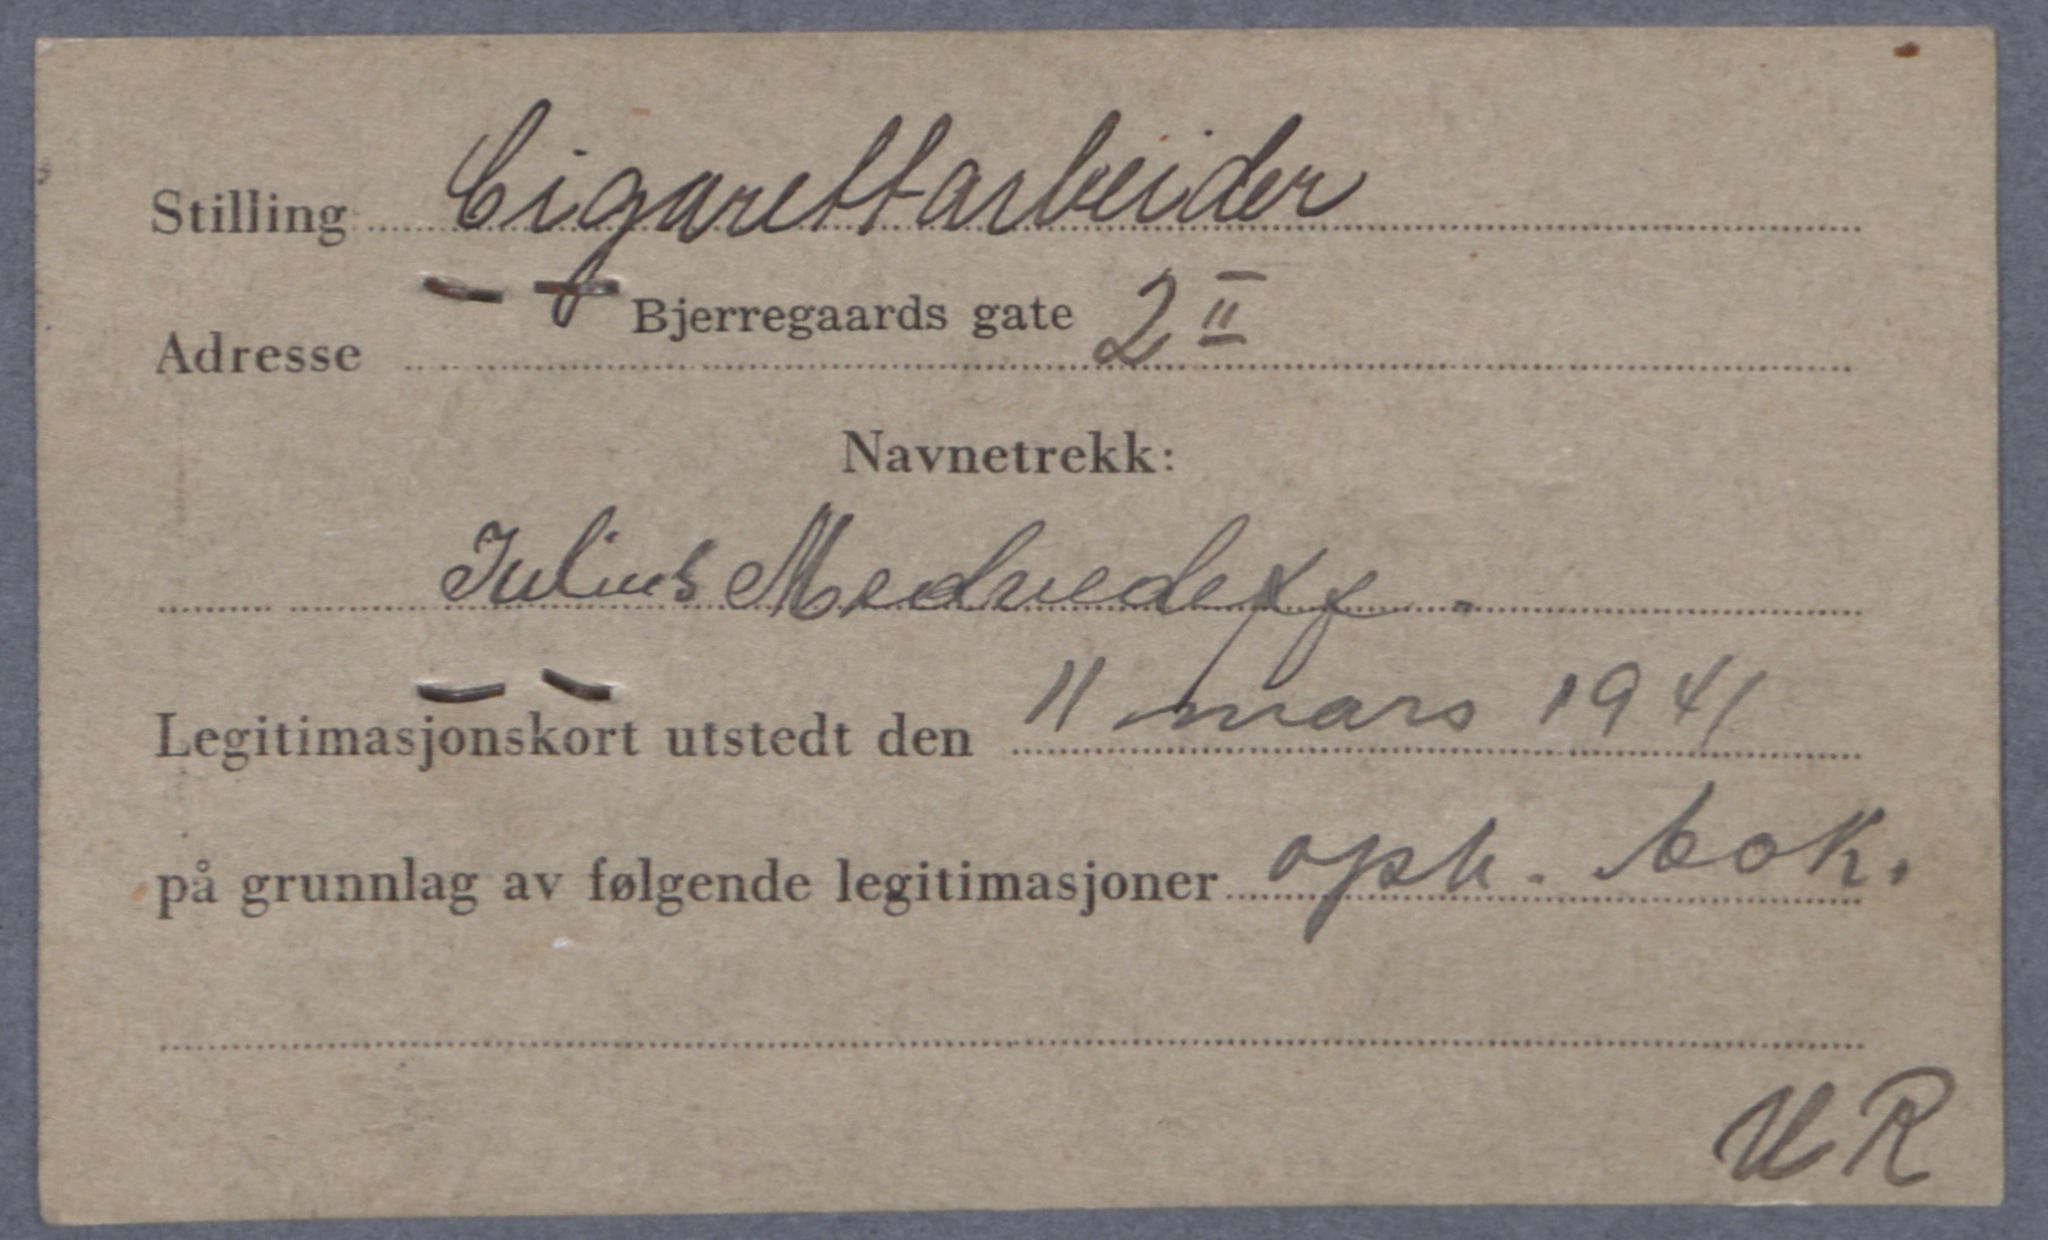 Stilling Cigarettarbeider
Adresse Bjerregaards gate 2 II
Navnetrekk:
Julius Medvedeff.
Legitimasjonskort utstedt den 11 mars 1941
på grunnlag av følgende legitimasjoner oph. bok.
UR